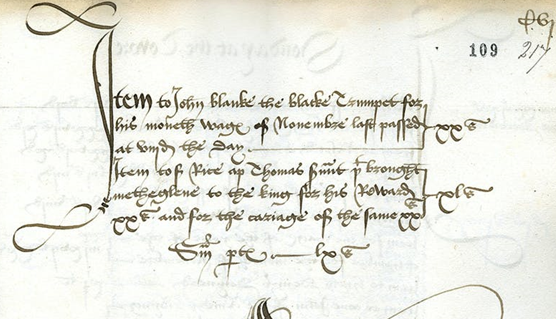 109
217
Item to John blanke the blacke Trumpet for
his moneth wages of Novembre last passed
at viijd the day xxs
Item to Rice ap Thomas brought
metheglene to the king for his Reward
xxs and for the cariage of the same xxs xls
lxs